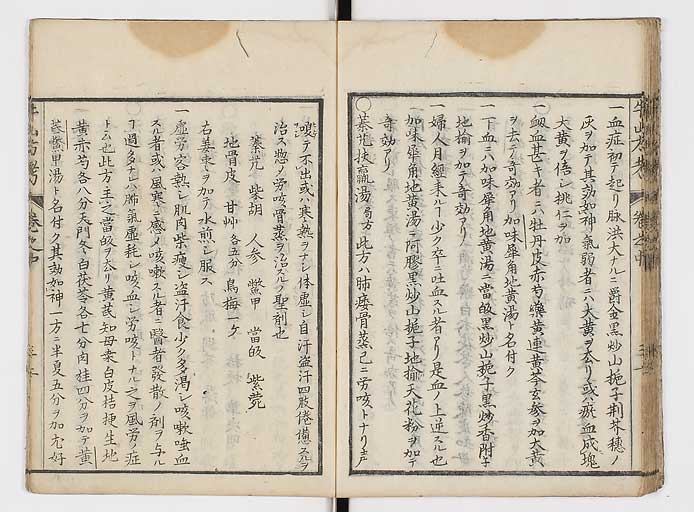 一血症初テ起リ脉洪大ナルニ爵金黒炒山梔子荆芥穗ノ
灰ヲ加テ其効如神氣弱者ニハ大黄ヲ去リ或ハ瘀血成塊
大黄ヲ倍シ桃仁ヲ加
一衂血甚キ者ニハ牡丹皮赤芍藥黄連黄芩玄参ヲ加大黄
ヲ去テ奇効アリ加味犀角地黄湯ト名付ク
一下血ニハ加味犀角地黄湯ニ當皈黒炒山梔子黒炒香附子
地榆ヲ加テ奇効アリ
一婦人月經来ルヿ少ク卒ニ吐血スル者アリ是血ノ上逆スル也
加味犀角地黄湯ニ阿膠黒炒山梔子地榆天花粉ヲ加テ
奇効アリ
○秦艽扶羸湯 局方 此方ハ肺痿骨蒸已ニ労咳トナリ声
嗄テ不出或ハ寒熱ヲナシ体虚シ自汗盗汗四肢倦憊スルヲ
治ス惣ノ労咳骨蒸ヲ治スルノ聖剤也
秦艽 柴胡 人参 鱉甲 當皈 紫菀
地骨皮 甘艸 各五分 烏梅一ケ
右姜棗ヲ加テ水煎シ服ス
一虚労客熱シ肌肉柴瘦シ盗汗食少ク多渇シ咳嗽吐血
スル者或ハ風寒ニ感ノ咳嗽スル者ニ醫者發散ノ剤ヲ与ル
ヿ過多ナレハ肺氣虚耗シ咳血シ労咳トナル之ヲ風労ノ症
ト云也此方ヲ主ニ當皈ヲ去リ黄芪知母桒白皮桔梗生地
黄赤芍各八分天門冬白茯苓各七分肉桂四分ヲ加テ黄
芪鱉甲湯ト名付ク其効如神一方ニ半夏五分ヲ加尤好
牛山方考
卷之中